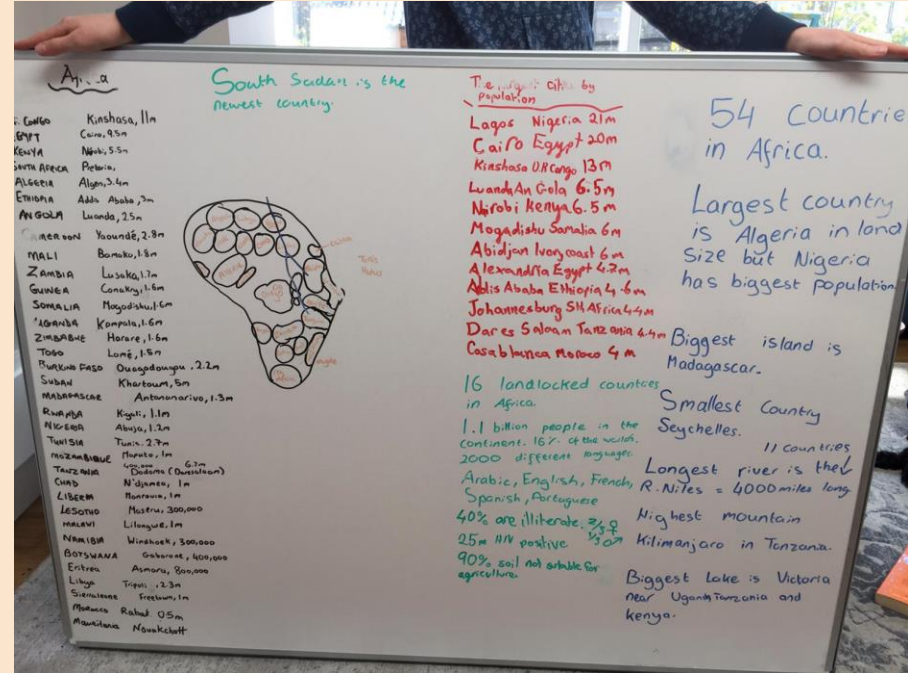 South Sudan is the
newest country.
CONGO Kinshasa, 11m
EGYPT Cairo, 9.5m
KENYA Nirobi, 5.5m
SOUTH AFRICA Pretoria,
ALGERIA Algers, 3.4m
ETHIOPIA Addo Ababa, 3m
ANGOLA Luanda, 2.5m
CAMEROON Yaoundé, 2.8m
MALI Bamako, 1.8m
ZAMBIA Lusaka, 1.7m
GUINEA Conakry, 1.6m
SOMALIA Mogodishu, 1.6m
UGANDA Kampala, 1.6m
ZIMBABWE Harare, 1.6m
TOGO Lomé, 1.5m
BURKINO FASO Ouagadougou, 2.2m
SUDAN Khartoum, 5m
MADAGASCAR Antananarivo, 1.3m
RWANDA Kigali, 1.1m
NIGERIA Abuja, 1.2m
TUNISIA Tunis, 2.7m
MOZAMBIQUE Maputo, 1m
400,000 6.7m
TANZANIA Dodoma (Daressalaam)
CHAD N'djamea, 1m
LIBERIA Monrovia, 1m
LESOTHO Maseru, 300,000
MALAWI Lilongwe, 1m
NAMIBIA Windhoek, 300,000
BOTSWANA Gaborone, 400,000
Eritrea Asmora, 800,000
Libya Tripoli, 2.3m
Sierraleone Freetown, 1m
Morocco Rabat 0.5m
Mauritania Nouakchott
The largest cities by
population
Lagos Nigeria 21m
Cairo Egypt 20m
Kinshasa D.R Congo 13m
Luanda An Gola 6.5m
Nirobi Kenya 6.5m
Mogadishu Somalia 6m
Abidjan Ivory coast 6m
Alexandria Egypt 4.7m
Adis Ababa Ethiopia 4.6m
Johannesburg Sth Africa 4.4m
Dar es Salaam Tanzania 4.4m
Casablanca Moroco 4m
16 landlocked countres
in Africa
1.1 billion people in the
continent. 16% of the worlds.
2000 different languages.
Arabic, English, French,
Spanish, Portuguese
40% are illiterate. 2/3 ♀
1/3 ♂
25m HIV positive
90% soil not suitable for
agriculture.
54 countrie
in Africa.
Largest country
is Algeria in land
size but Nigeria
has biggest population
Biggest island is
Madagascar.
Smallest Country
Seychelles.
11 countries
Longest river is the
R. Niles = 4000 miles long
Highest mountain
Kilimanjaro in Tanzania.
Biggest Lake is Victoria
near Uganda, Tanzania and
Kenya.